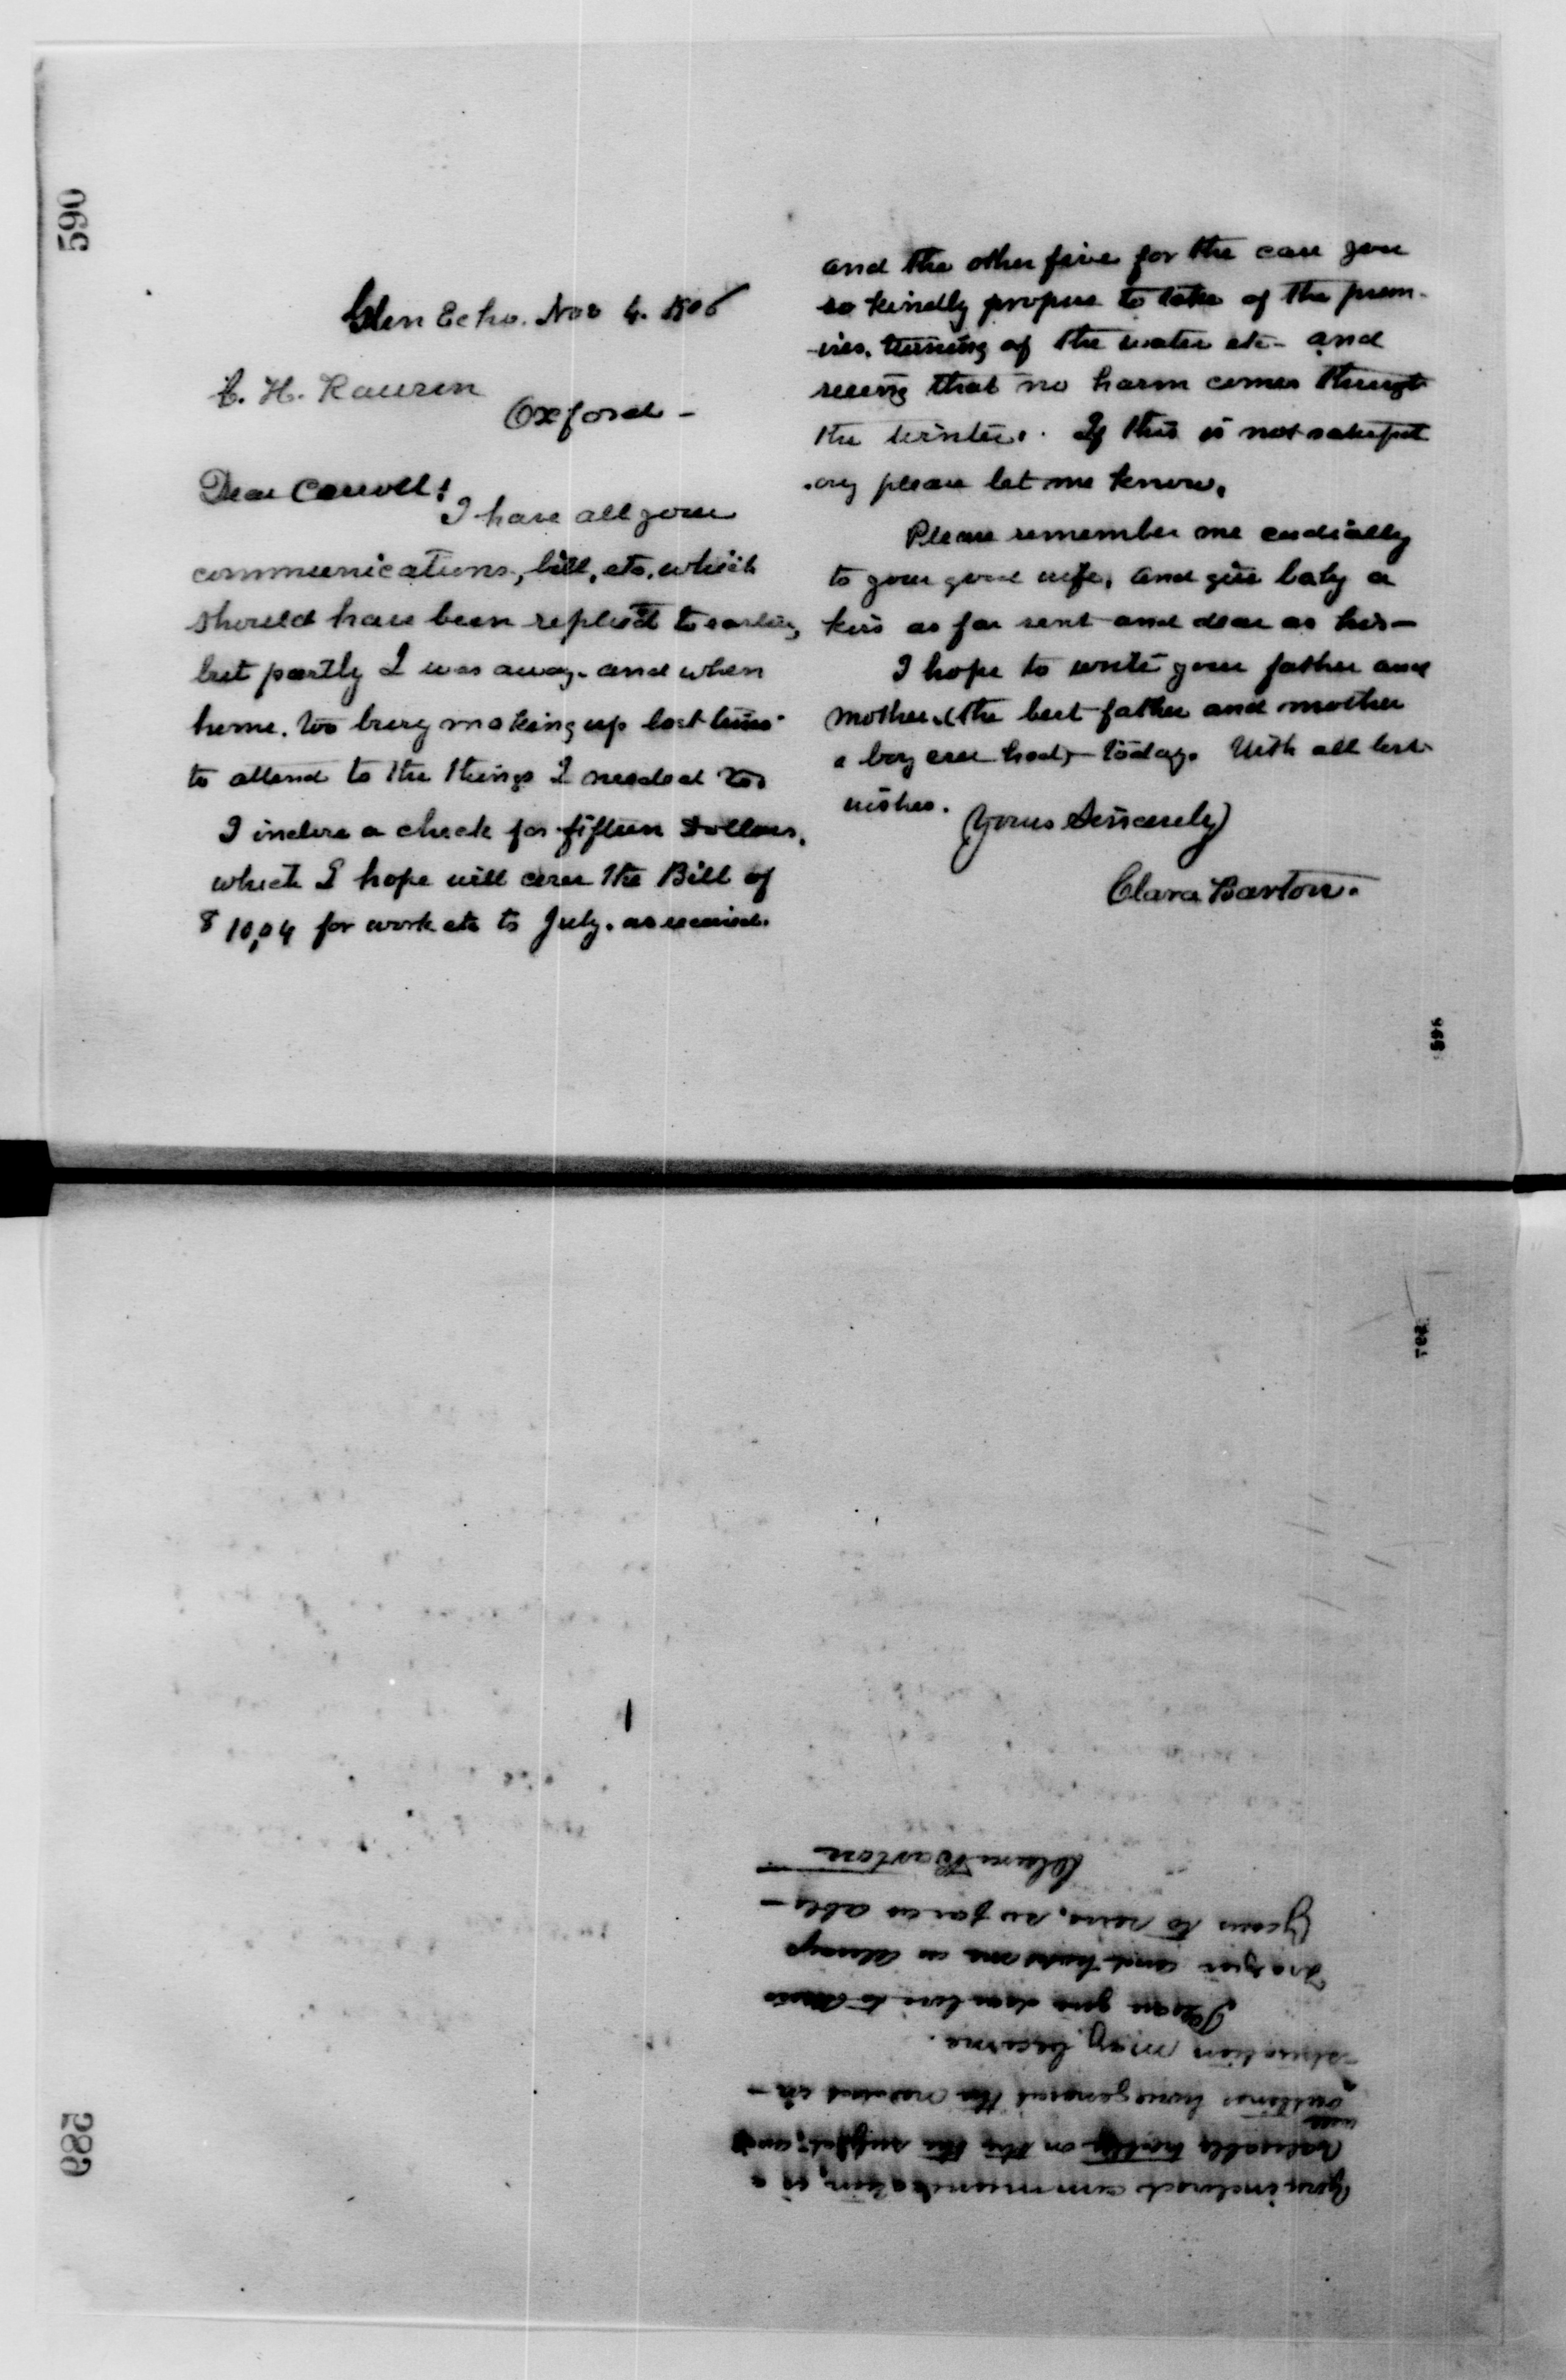 590
Glen Echo. Nov 4. 1906
C. H. Rawson
Oxford -
Dear Carroll!
I have all your
communications, bill, etc. which
should have been replied to earlier,
but partly I was away. and when
home. too busy making up lost time
to attend to the things I needed to.
I inclose a check for fifteen Dollars.
which I hope will cover the Bill of
$ 10,04 for work etc to July. as received.
and the other five for the care you
so kindly propose to take of the prem-
-ises, turning of the water etc - and
seeing that no harm comes through
the winter. If this is not satisfact
-ory please let me know.
Please remember me cordially
to your good wife, and give baby a
kiss as far sent and dear as his -
I hope to write your father and
mother (the best father and mother
a boy ever had) - today. With all best
wishes.
Yours Sincerely
Clara Barton.
596
589
Your inclosed communication, is a
valuable on the subject, and
will
outlines homogeneous the
-struation may become.
Please give dear love to
and me as always
Yours to, so far as able -
Clara Barton